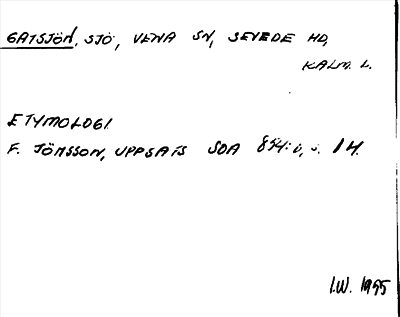 GATSJÖN, SJÖ, VENA SN, SEVEDE HD,
KALM. L.
ETYMOLOGI
F. JÖNSSON, UPPSATS SOA 854: s. 14.
I.W. 1955